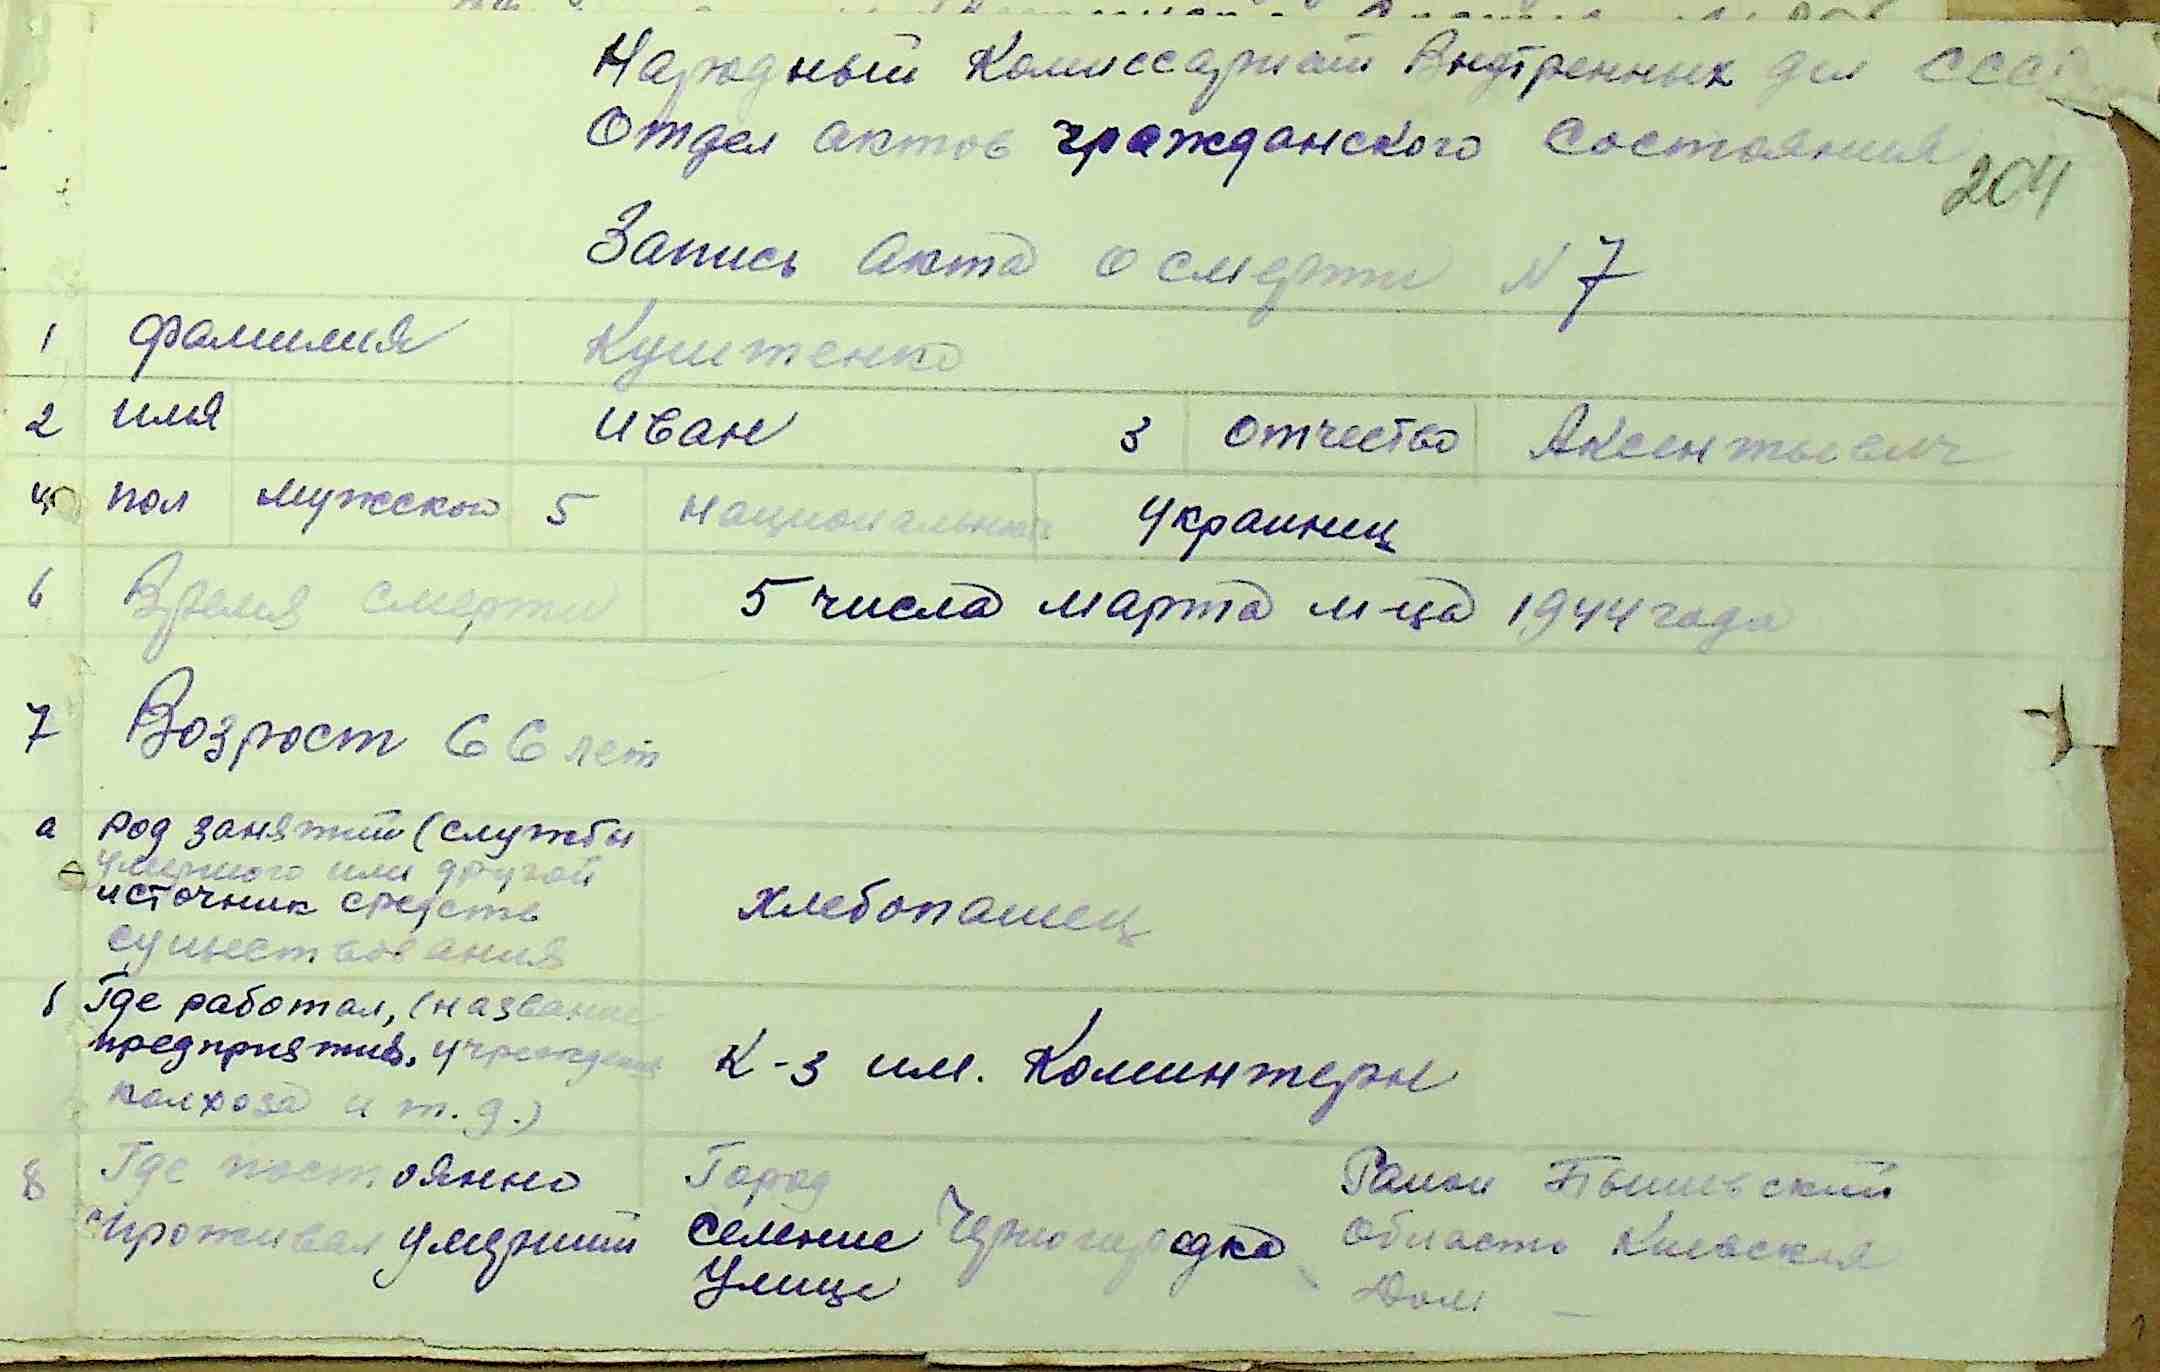 Народный Комиссариат Внутренных дел СССР
Отдел актов гражданского состояния
204
Запись акта о смерти N 7
1 фамилия Куштенко
2 имя Иван 3 отчество Аксентьевич
4 пол мужской 5 национальность Украинец
6 Время смерти 5 числа марта м-ца 1944 года
7 Возрост 66 лет
а род занятий (службы
умершого или другой
источник средств
существования
хлебопашец
б Где работал, (название
предприятия, учреждения
колхоза и т.д.)
К-з им. Коминтерн
8 Где постоянно Город Район
проживал умерший селение Черногородка Область Киевская
Улица Дом –